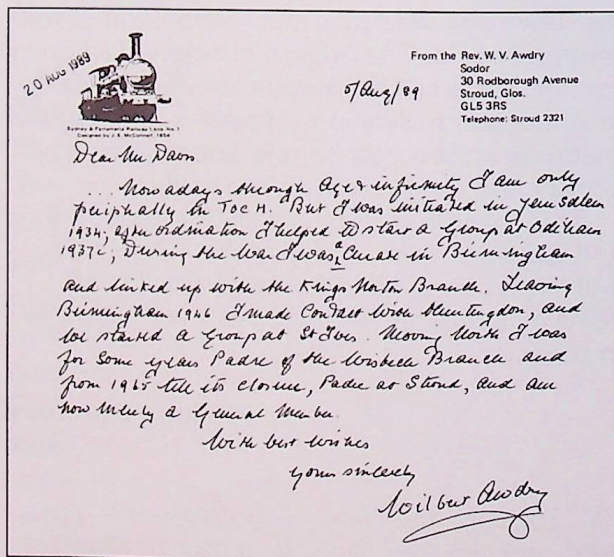 20 AUG 1989
Sydney & Parramatta Railway Loco. No. 1
Designed by J. E. McConnell, 1854
From the Rev. W. V. Awdry
Sodor
30 Rodborough Avenue
Stroud, Glos.
GL5 3RS
Telephone: Stroud 2321
5/Aug/89
Dear Mr Davis
... Nowadays through Age & infirmity I am only
peripherally in Toc H. But I was initiated in Jerusalem
1934; after ordination I helped to start a Group at Odiham
1937; During the War I was a Curate in Birmingham
and linked up with the Kings Norton Branch. Leaving
Birmingham 1946 I made Contact with Huntingdon, and
we started a Group at St Ives. Moving North I was
for Some years Padre of the Wisbech Branch and
from 1965 till its closure, Padre at Stroud, and am
now merely a General Member.
With best wishes
yours sincerely
Wilbert Awdry